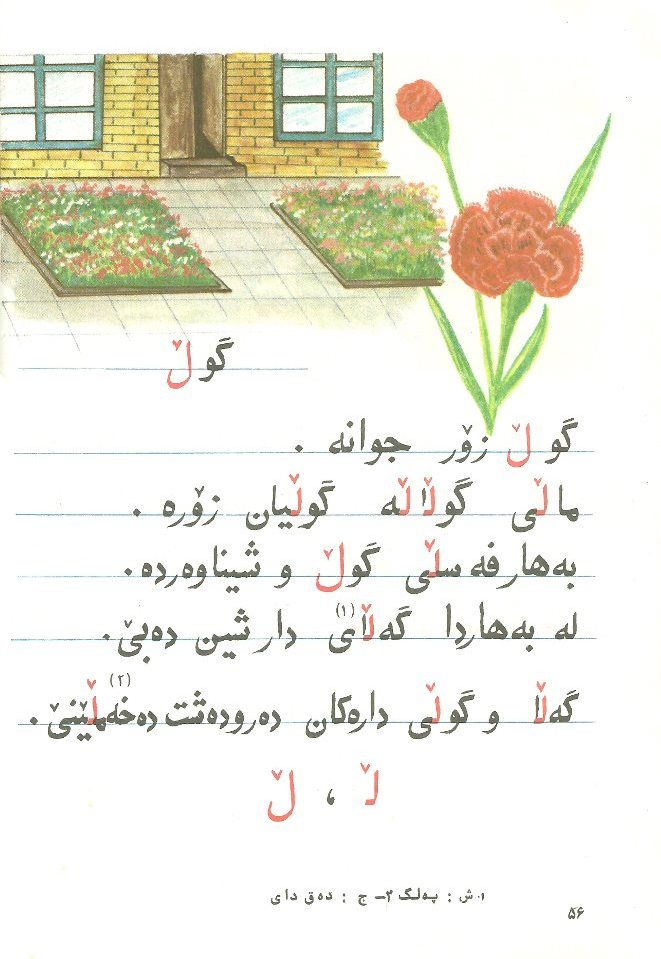 گوڵ
گوڵ زۆر جوانە .
ماڵی گوڵاڵە گوڵیان زۆرە .
بەهار فەسڵی گوڵ و شیناوەردە .
لە بەهاردا گەڵای (۱) دار شین دەبێ .
گەڵا و گوڵی دارەکان دەرودەشت دەخەمڵێنێ (۲) .
ڵـ ، ڵ
۱۰ ش : پەلگ ۲ – ج : دەق دای
۵۶